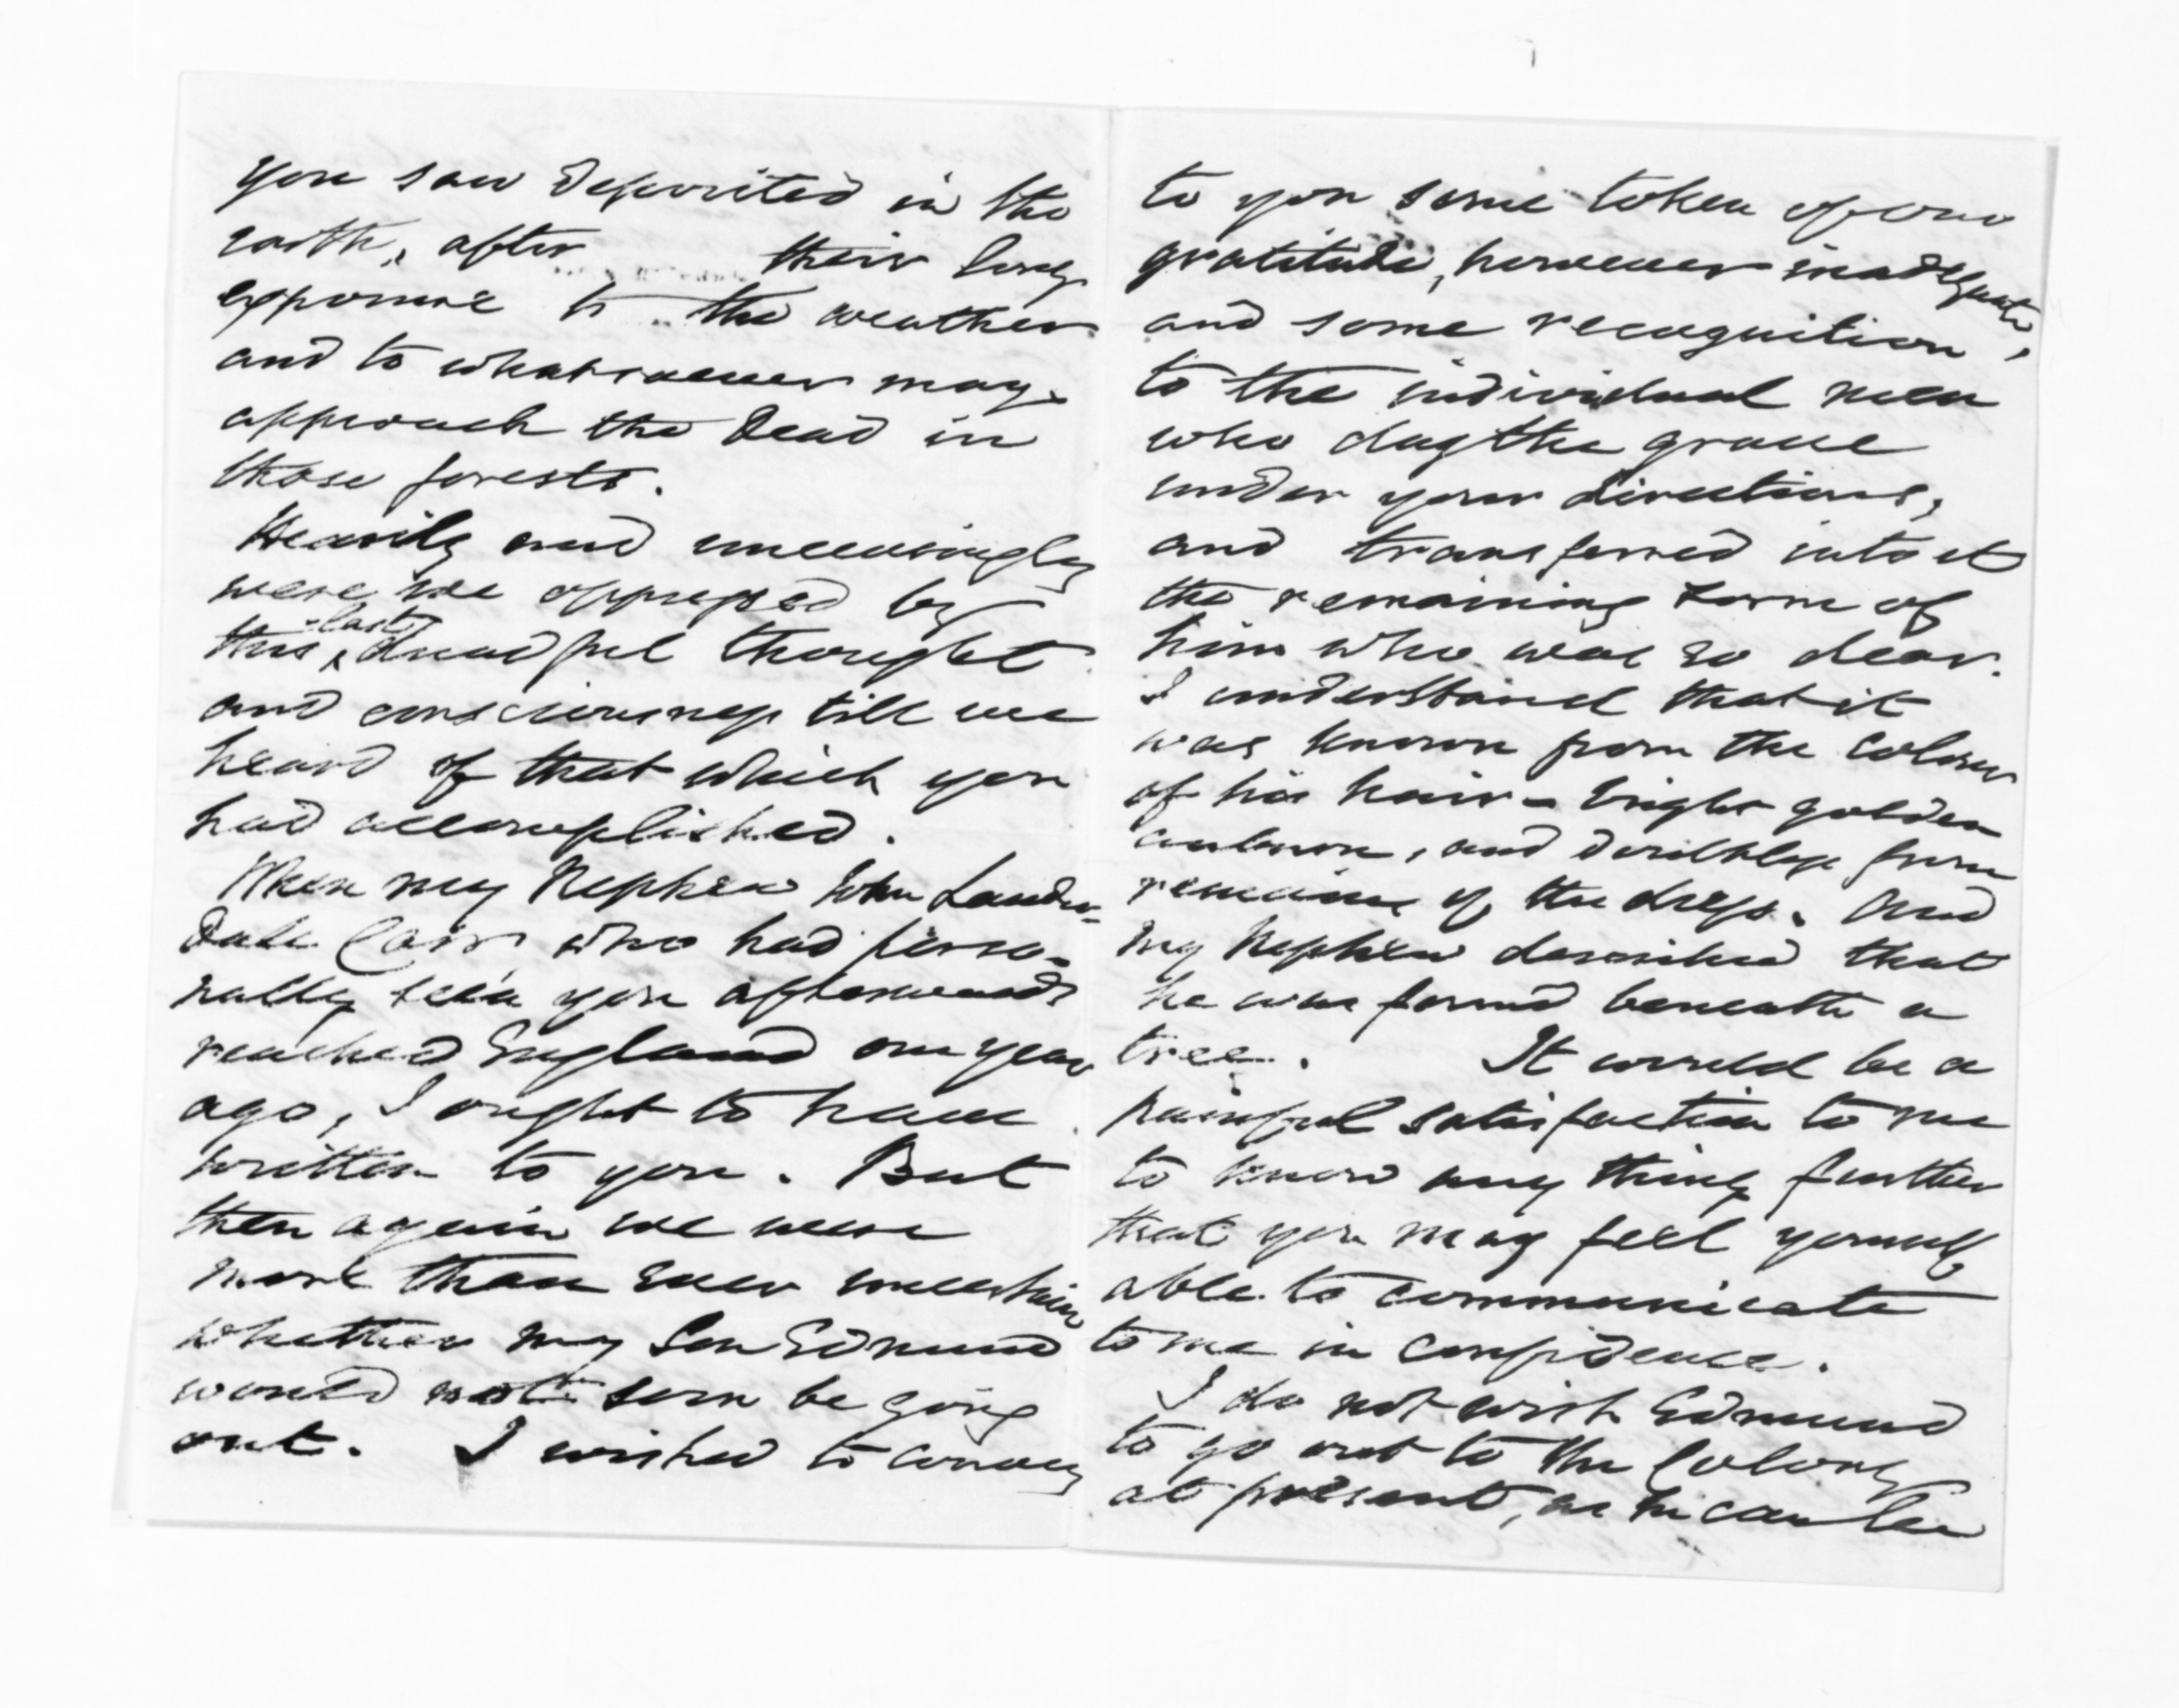 you saw deposited in the
earth, after their long
exposure to the weather
and to whatsoever may
approach the Dead in
those forests.
Heavily and unceasingly
were we oppressed by
this last dreadful thought
and consciousness till we
heard of that which you
had accomplished.
When my Nephew John Lauder-
dale who had perso-
nally seen you afterwards
reached England one year
ago, I ought to have
written to you. But
then again we were
more than ever uncertain
whether my Son Edmund
would not soon be going
out. I wished to convey
to you some token of our
gratitude, however inadequate,
and some recognition,
to the individual men
who dug the grave
under your directions,
and transferred into it
the remaining form of
him who was so dear.
I understand that it
was known from the colour
of his hair - bright golden
auburn, and doubtless from
remains of the dress. And
my Nephew described that
he was found beneath a
tree. It would be a
painful satisfaction to me
to know any thing further
that you may feel yourself
able to communicate
to me in confidence.
I do not wish Edmund
to go out to the Colony
at present, as he can be